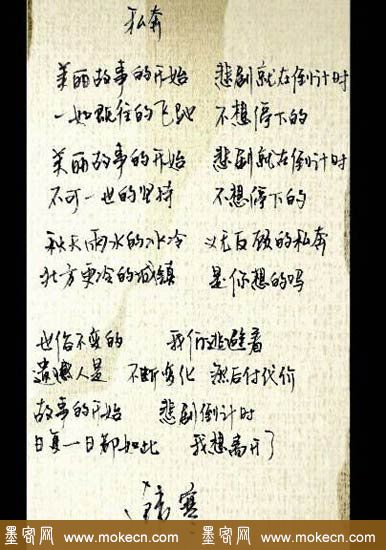 私奔
美丽故事的开始 悲剧就在倒计时
一如既往的飞 不想停下的
美丽故事的开始 悲剧就在倒计时
不可一世的坚持 不想停下的
秋天雨水的冰冷 义无反顾的私奔
北方更冷的城镇 是你想的吗
世俗不变的 我们逃避着
遗憾人是 不断变化 然后付代价
故事的开始 悲剧倒计时
日复一日都如此 我想离开了
寒
墨客网 www.mokecn.com 墨客网 www.mokecn.com